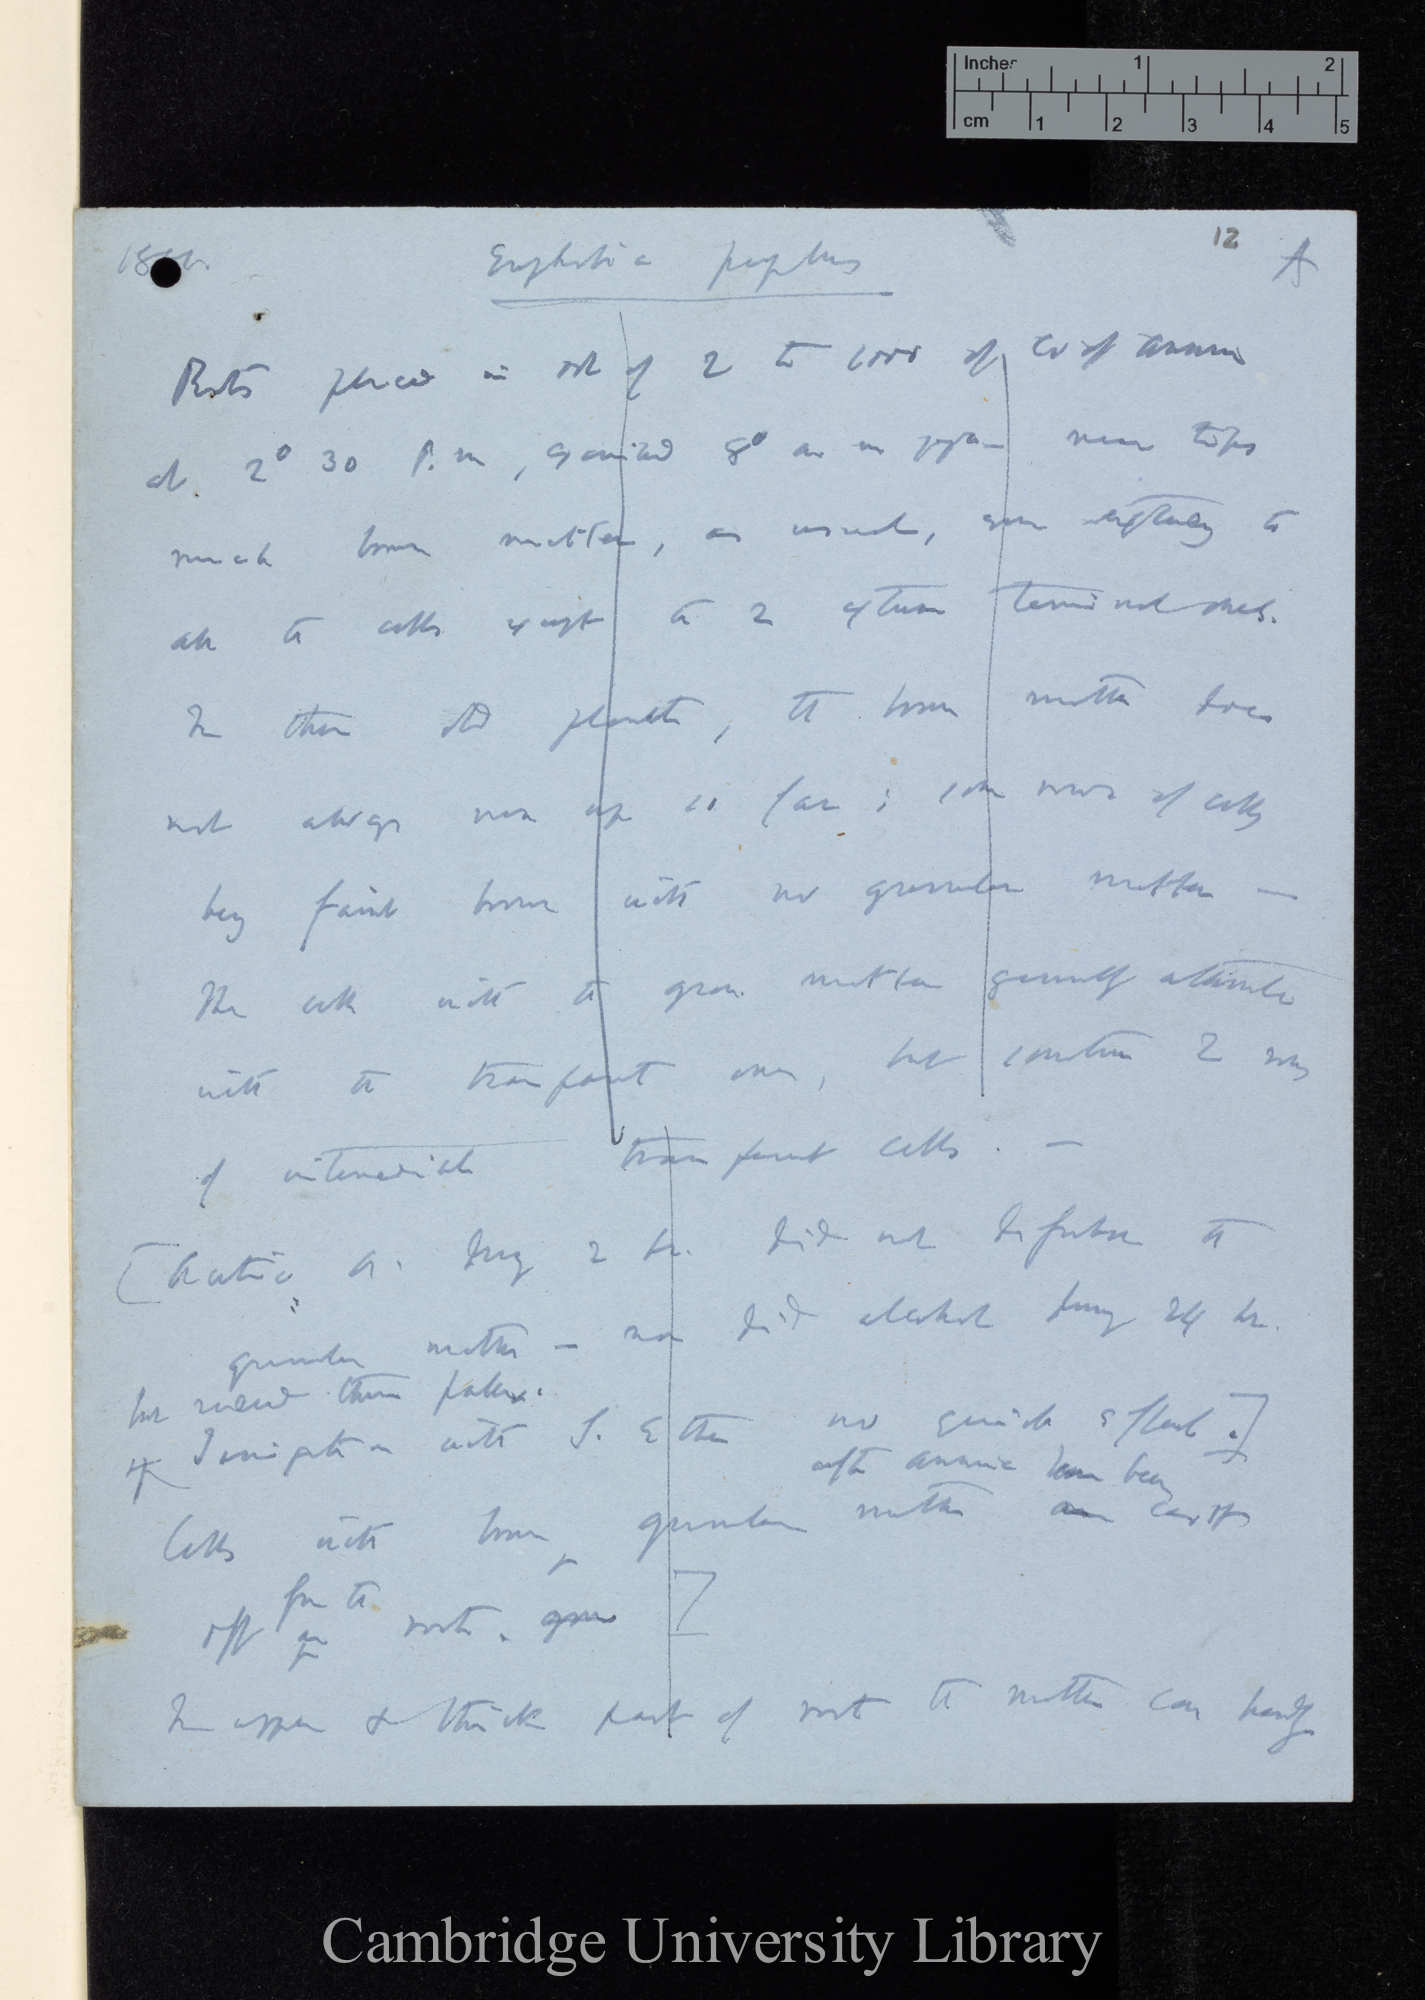 Inches 1 2
cm 1 2 3 4 5
12
A
Euphorbia peplus
Roots placed in sol of 2 to 1000 of C. of Ammon
at 2° 30 P.m, examined 8° am
near tips
much brown matter, as usual, even
to
all the cells except the 2 extreme terminal ones.
In these old plants, the brown matter does
not always run up so far; some rows of cells
being faint brown with no granular matter —
The cells with the gran. matter generally alternate
with the transparent ones, but sometimes 2 rows
of intermediate transparent cells. —
[Acetic A. during 2 hr. did not
the
granular matter — nor did alcohol during 24 hr.
but rendered them paler.
Irrigation with S. Ether no quick effect.]
after ammonia have been
Cells with brown granular matter
off from the roots.
]
In upper & thick part of root the matter can hardly
Cambridge University Library